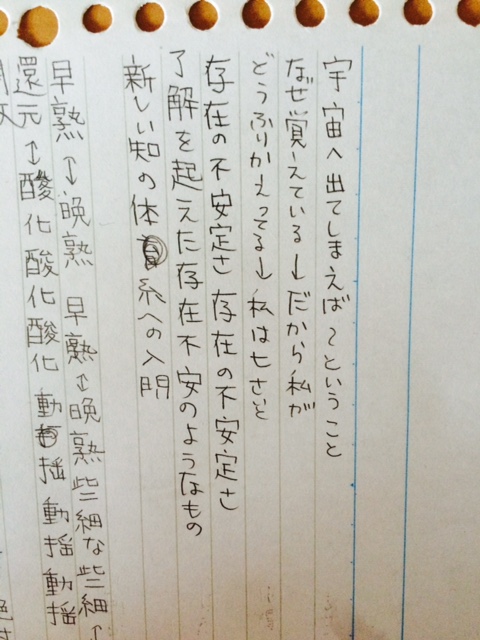 宇宙へ出てしまえば〜ということ
なぜ覚えている↓だから私が
どうふりかえってる↓私は七さと
存在の不安定さ 存在の不安定さ
了解を起えた存在不安のようなもの
新しい知の体系への入門
早熟↕晩熟 早熟↕晩熟 些細な些細↑
還元↕酸化 酸化 酸化 動揺 動揺 動揺